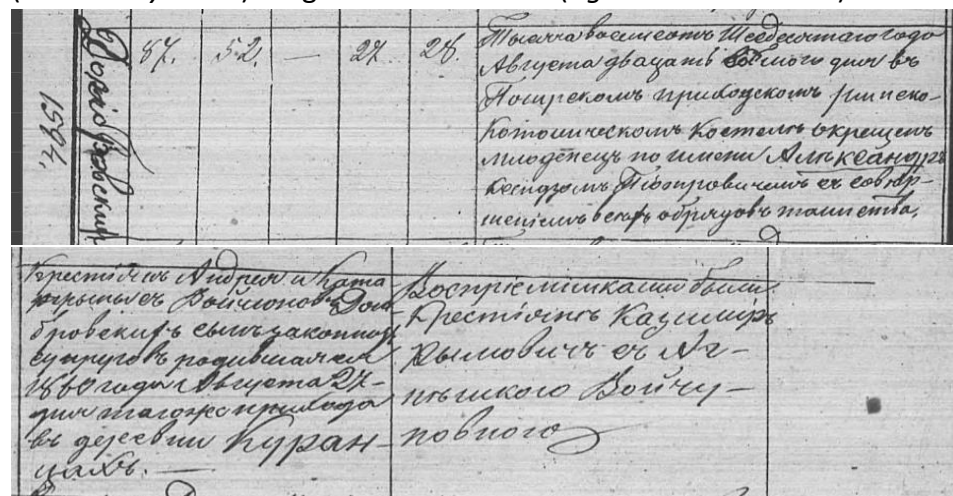 1594.
Домбровский
87.
52.
—
27
28.
Тысяча восемсотъ Шесдесятаго года
Августа двадцать восмого дня въ
приходскомъ римско-
Католическомъ Костелѣ окрещенъ
младенецъ по имени Александръ
Ксендзомъ Піотровичемъ съ совер-
шеніемъ всѣхъ обрядовъ таинства.
Крестьянъ Андрея и Ката-
рыны съ Войшноровъ Дом-
бровскихъ сынъ законныхъ
супруговъ родившагося
1860 года Августа 27-
дня тагоже прихода
въ деревни Куран-
цахъ. —
Воспріемниками были
Крестьянинъ Казимиръ
съ Аг-
нѣшкою Войчу-
новною